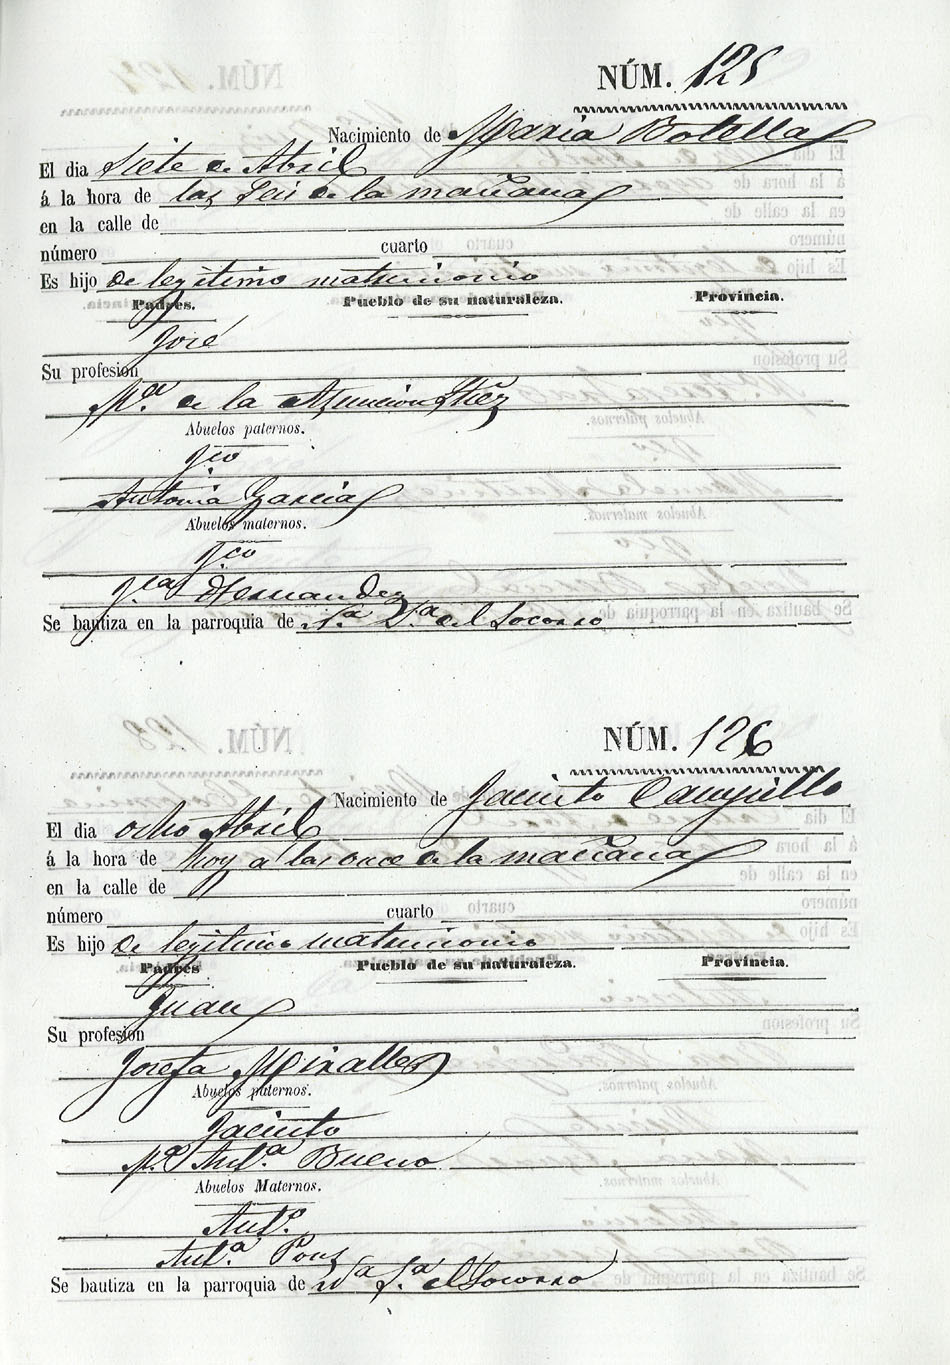 NÚM. 125
Nacimiento de Maria Botella
El dia Siete de Abril
á la hora de las Seis de la mañana
en la calle de
número cuarto
Es hijo de legitimo matrimonio
Padres. Pueblo de su naturaleza. Provincia.
José
Su profesion
Mª. de la Asuncion
Abuelos paternos.
Fco
Antonia Garcia
Abuelos maternos.
Fco
Fca Hernandez
Se bautiza en la parroquia de Nª. Sª. del Socorro
NÚM. 126
Nacimiento de Jacinto Campillo
El dia ocho Abril
á la hora de hoy a las once de la mañana
en la calle de
número cuarto
Es hijo de legitimo matrimonio
Padres Pueblo de su naturaleza. Provincia.
Juan
Su profesion
Josefa Miralles
Abuelos paternos.
Jacinto
Mª. Antª. Bueno
Abuelos Maternos.
Antº.
Antª. Pons
Se bautiza en la parroquia de Nª Sª. del Socorro